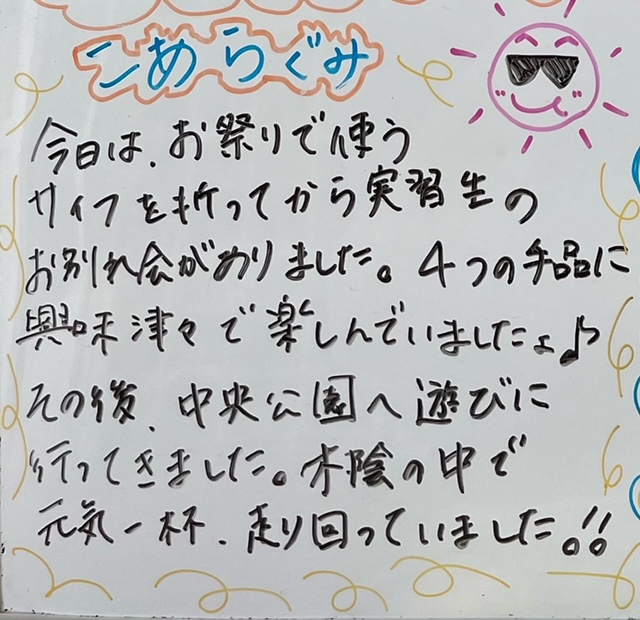 こあらぐみ
今日は、お祭りで使う
サイフを折ってから実習生の
お別れ会がありました。4つの手品に
興味津々で楽しんでいましたよ♪
その後、中央公園へ遊びに
行ってきました。木陰の中で
元気一杯、走り回っていました!!